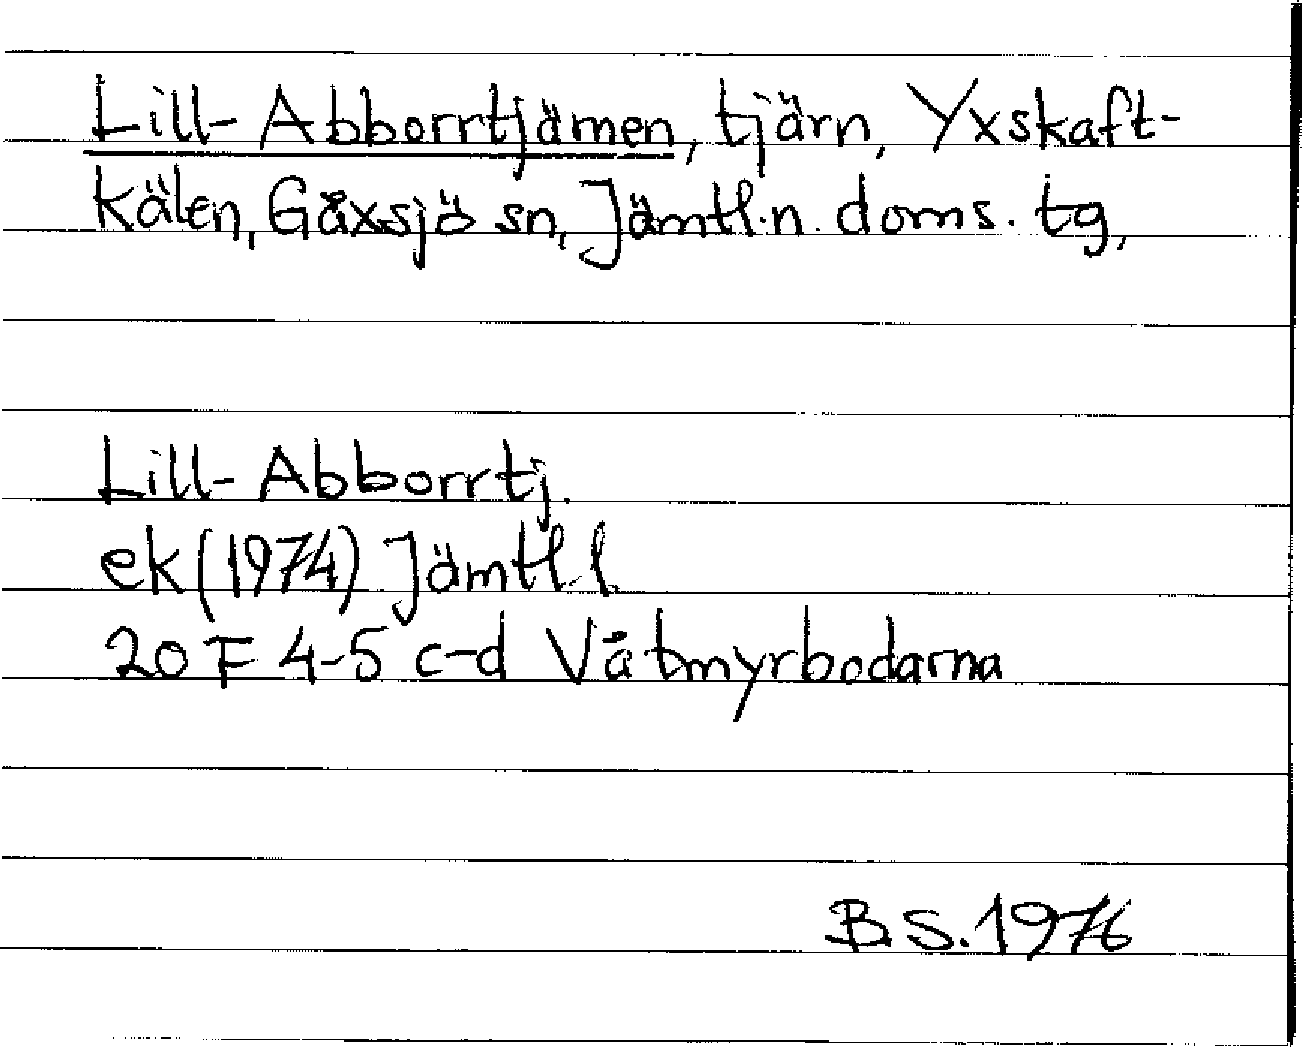 Lill-Abborrtjämen, tjärn, Yxskaft-
kälen, Gåxsjö sn, Jämtl.n. doms. tg,
Lill-Abborrtj.
ek (1974) Jämtl.l.
20 F 4-5 c-d Våtmyrbodarna
B.S. 1976